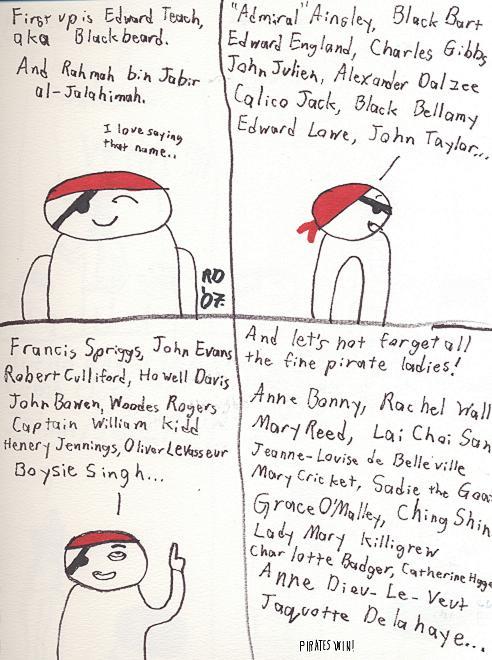 First up is Edward Teach,
aka Blackbeard.
And Rahmah bin Jabir
al-Jalahimah.
I love saying
that name..
RO
'07.
"Admiral" Ainsley, Black Bart
Edward England, Charles Gibbs
John Julien, Alexander Dalzee
Calico Jack, Black Bellamy
Edward Lowe, John Taylor...
Francis Spriggs, John Evans
Robert Culliford, Howell Davis
John Bowen, Woodes Rogers
Captain William Kidd
Henery Jennings, Oliver Levasseur
Boysie Singh...
And let's not forget all
the fine pirate ladies!
Anne Bonny, Rachel Wall
Mary Reed, Lai Choi San
Jeanne-Louise de Belleville
Mary Cricket, Sadie the Goa
Grace O'Malley, Ching Shin
Lady Mary Killigrew
Charlotte Badger, Catherine Hagg
Anne Dieu-Le-Veut
Jaquotte Delahaye...
PIRATES WIN!